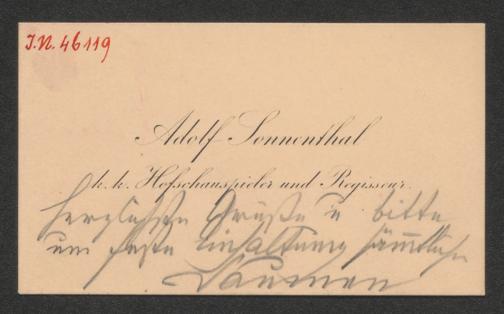 J.N. 46119
Adolf Sonnenthal
k. k. Hofschauspieler und Regisseur.
herzlichste Grüße u bitte
um feste Einhaltung sämtlicher
Daumen